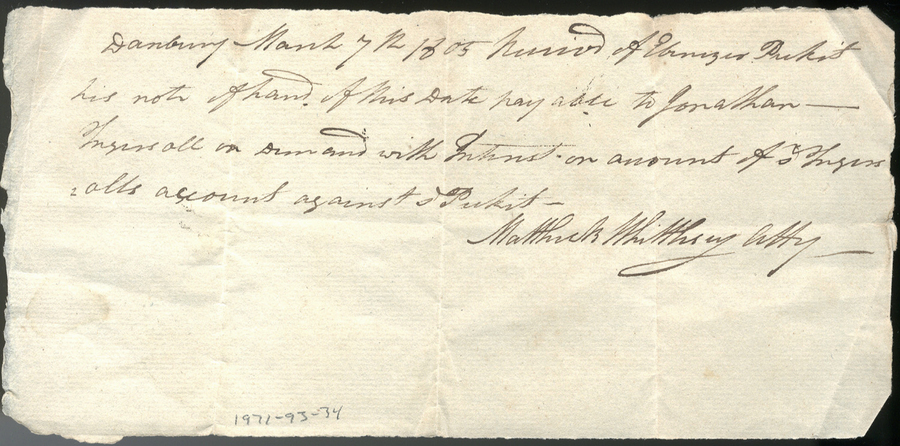 Danbury March 7th 1805 Received of Ebenezer Pickit
his note of hand of this Date payable to Jonathan —
Ingersoll on Demand with Interest on account of sd Ingers
=olls account against sd Pickit —
Matthew B Whittlesey Atty —
1971-93-34